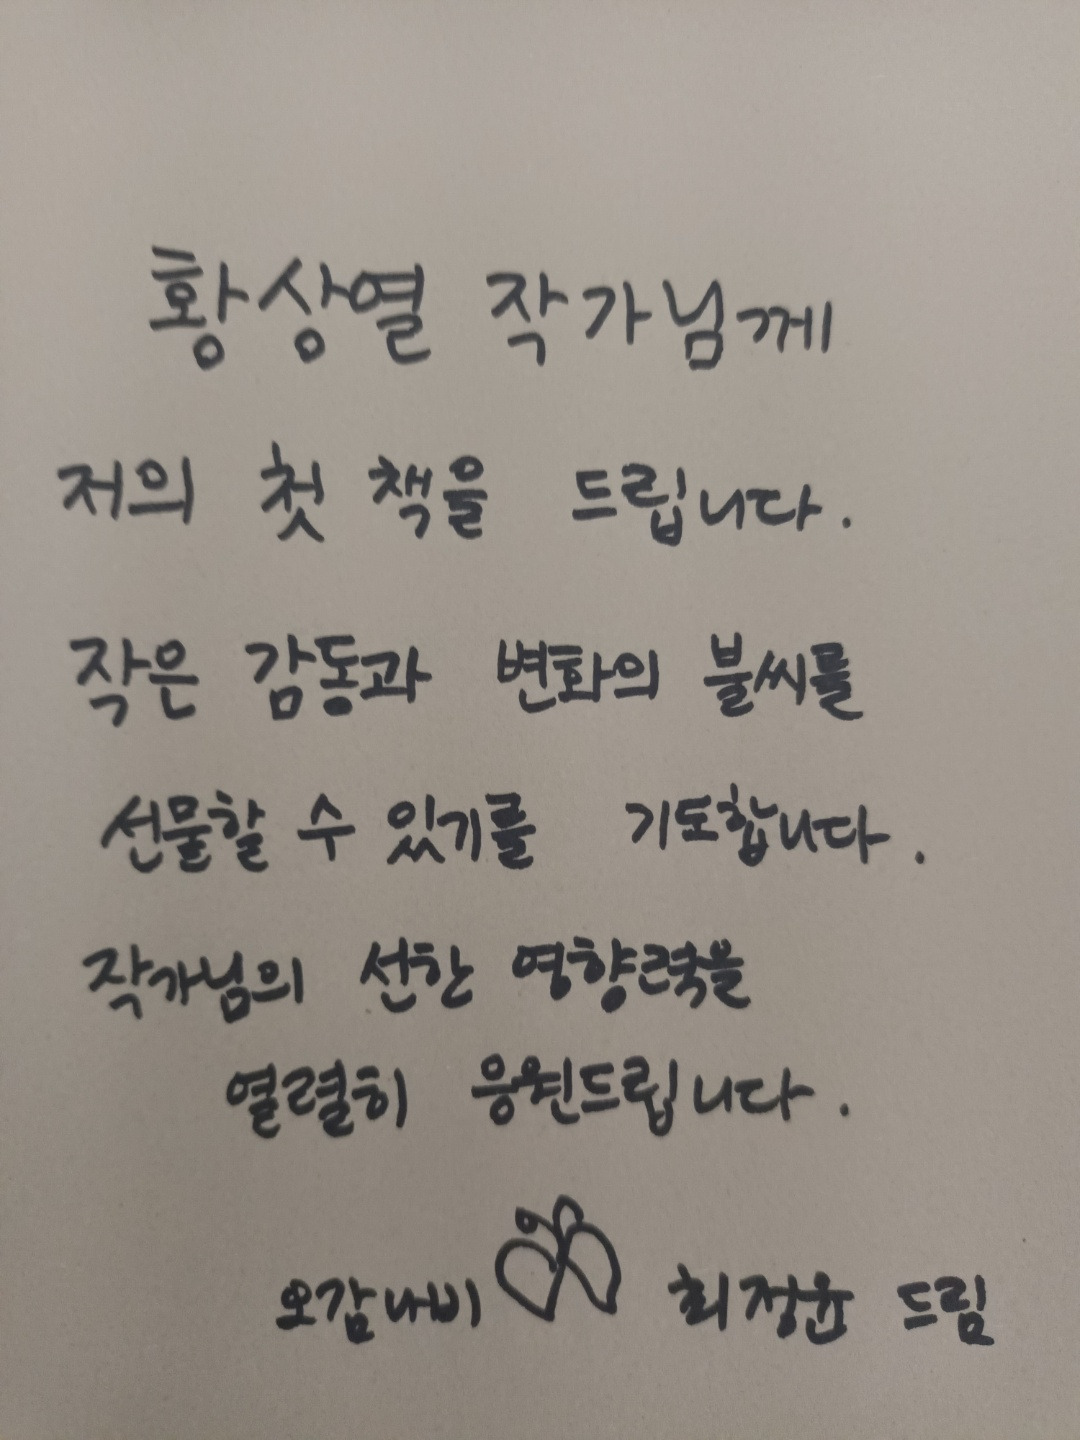 황상열 작가님께
저의 첫 책을 드립니다.
작은 감동과 변화의 불씨를
선물할 수 있기를 기도합니다.
작가님의 선한 영향력을
열렬히 응원드립니다.
오감나비 최정윤 드림